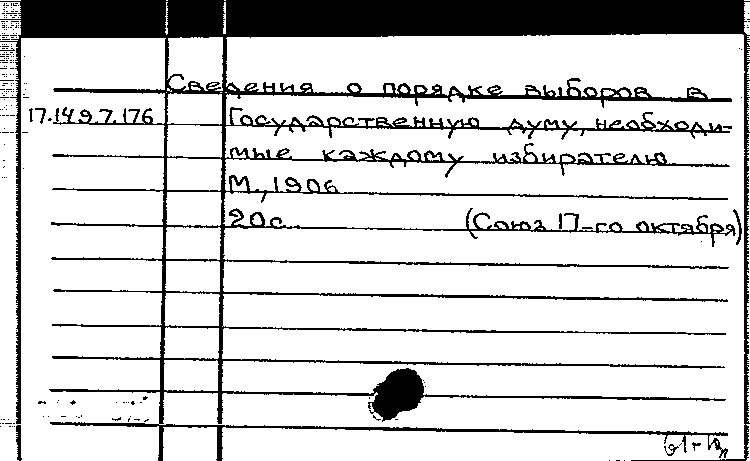 Сведения о порядке выборов в
17.149.7.176 Государственную думу, необходи-
мые каждому избирателю.
М., 1906
20с. (Союз 17-го октября)